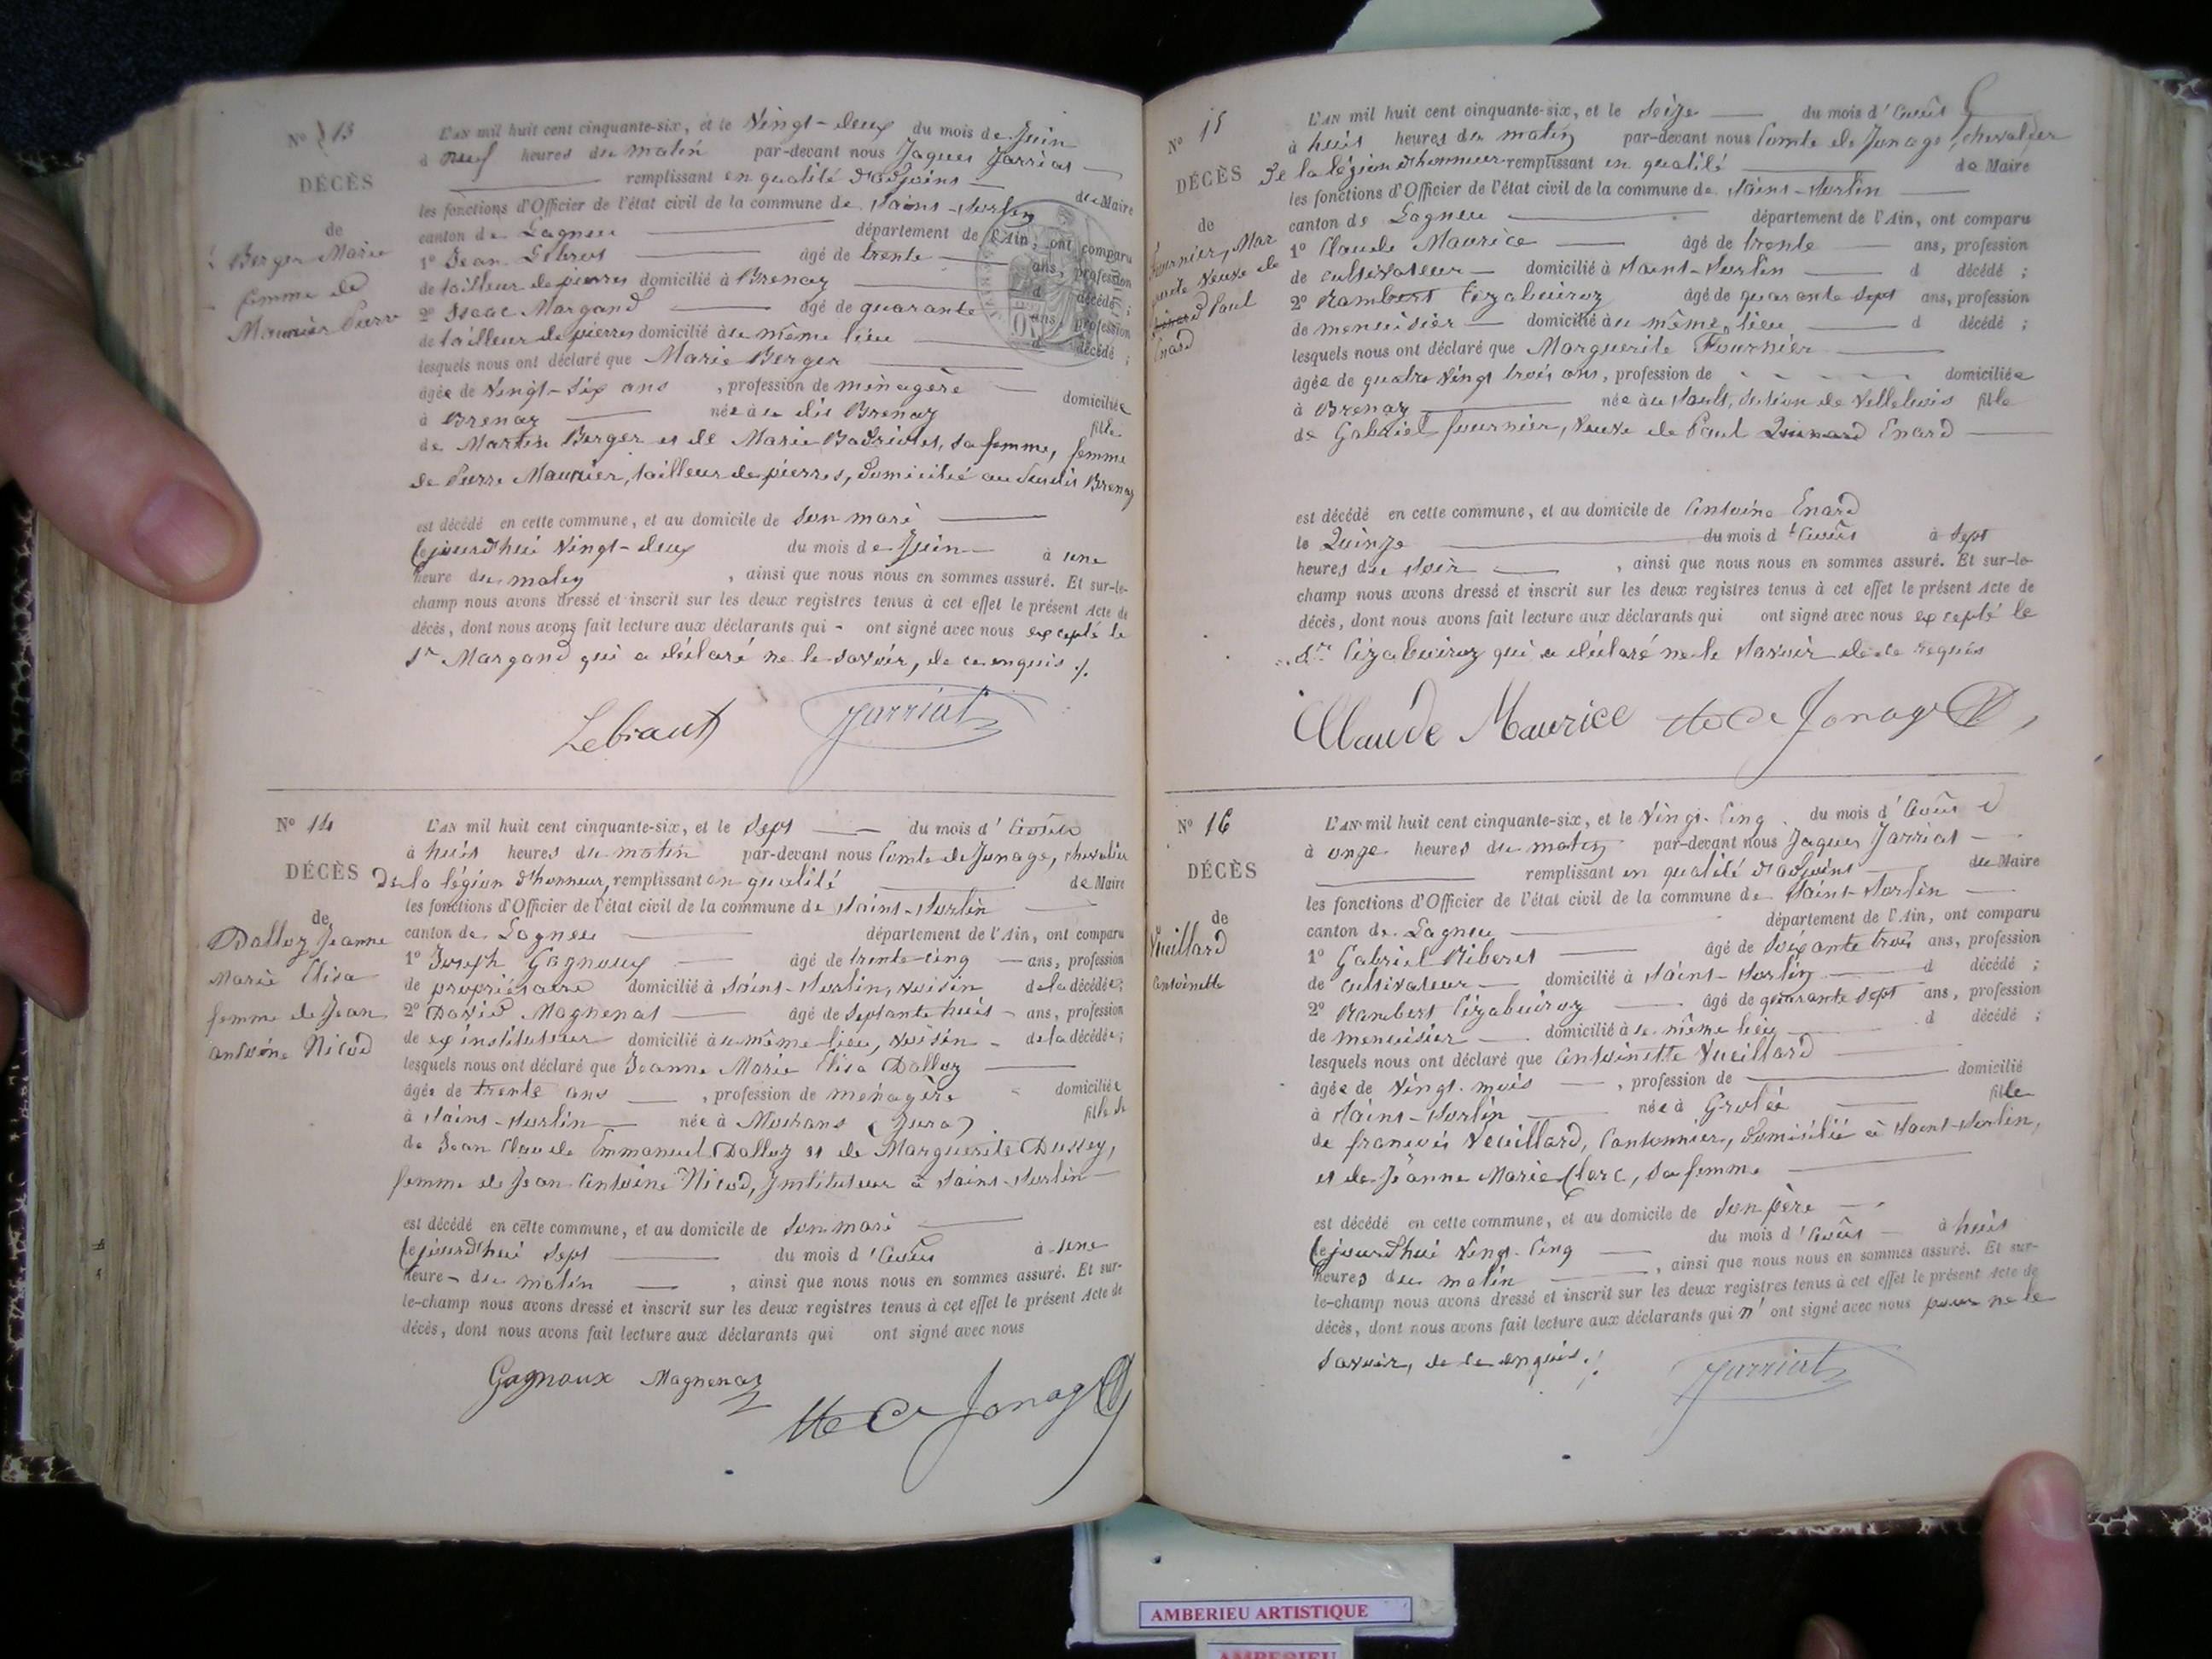 N° 13
DÉCÈS
de
Berger Marie
femme de
Maunier Pierre
L'AN mil huit cent cinquante-six, et le Vingt-deux du mois de Juin
à neuf heures du matin par-devant nous Jaques Jarriat
remplissant en qualité d'adjoint du Maire
les fonctions d'Officier de l'état civil de la commune de Saint-Sorlin
canton de Lagneu département de l'Ain, ont comparu
1° Jean âgé de trente ans, profession
de tailleur de pierres domicilié à Brenaz d décédé ;
2° Isaac Margand âgé de quarante ans, profession
de tailleur de pierres domicilié au même lieu d décédé ;
lesquels nous ont déclaré que Marie Berger
âgée de Vingt-six ans , profession de ménagère domiciliée
à Brenaz née au dit Brenaz fille
de Martin Berger et de Marie sa femme, femme
de Pierre Maunier, tailleur de pierres, domicilié au susdit Brenaz
est décédé en cette commune, et au domicile de son mari
Cejourd'hui Vingt-deux du mois de Juin à une
heure du matin , ainsi que nous nous en sommes assuré. Et sur-le-
champ nous avons dressé et inscrit sur les deux registres tenus à cet effet le présent Acte de
décès, dont nous avons fait lecture aux déclarants qui ont signé avec nous excepté le
Sr Margand qui a déclaré ne le savoir, de ce enquis ./.
Lebraut Jarriat
N° 14
DÉCÈS
de
Dalloz Jeanne
Marie Elisa
femme de Jean
antoine Nicod
L'AN mil huit cent cinquante-six, et le Sept du mois d'Août
à huit heures du matin par-devant nous Comte de Jonage, chevalier
De la légion d'honneur, remplissant en qualité de Maire
les fonctions d'Officier de l'état civil de la commune de Saint-Sorlin
canton de Lagneu département de l'Ain, ont comparu
1° Joseph Gagnoux âgé de trente-cinq ans, profession
de propriétaire domicilié à Saint-Sorlin, voisin de la décédée ;
2° David Magnenat âgé de septante huit ans, profession
de ex instituteur domicilié au même lieu, voisin de la décédée ;
lesquels nous ont déclaré que Jeanne Marie Elisa Dalloz
âgée de trente ans , profession de ménagère domiciliée
à Saint-Sorlin née à Moirans (Jura) fille de
de Jean Claude Emmanuel Dalloz et de Marguerite Dussey,
femme de Jean Antoine Nicod, Instituteur à Saint-Sorlin
est décédé en cette commune, et au domicile de son mari
Cejourd'hui Sept du mois d'Août à une
heure du matin , ainsi que nous nous en sommes assuré. Et sur-
le-champ nous avons dressé et inscrit sur les deux registres tenus à cet effet le présent Acte de
décès, dont nous avons fait lecture aux déclarants qui ont signé avec nous
Gagnoux Magnenaz
de Jonage
N° 15
DÉCÈS
de
Fournier, Mar
Veuve de
Paul
Enard
L'AN mil huit cent cinquante-six, et le Seize du mois d'Août
à huit heures du matin par-devant nous Comte de Jonage, chevalier
De la légion d'honneur remplissant en qualité de Maire
les fonctions d'Officier de l'état civil de la commune de Saint-Sorlin
canton de Lagneu département de l'Ain, ont comparu
1° Claude Maurice âgé de trente ans, profession
de cultivateur domicilié à Saint-Sorlin d décédé ;
2° Rambert Cizabuiroz âgé de quarante sept ans, profession
de menuisier domicilié au même lieu d décédé ;
lesquels nous ont déclaré que Marguerite Fournier
âgée de quatre Vingt trois ans, profession de domiciliée
à Brenaz née au Sault, fille
de Gabriel fournier, Veuve de Paul Enard
est décédé en cette commune, et au domicile de Antoine Enard
le Quinze du mois d'Août à Sept
heures du Soir , ainsi que nous nous en sommes assuré. Et sur-le-
champ nous avons dressé et inscrit sur les deux registres tenus à cet effet le présent Acte de
décès, dont nous avons fait lecture aux déclarants qui ont signé avec nous excepté le
Sr Cizabuiroz qui a déclaré ne le Savoir de ce requis
Claude Maurice de Jonage
N° 16
DÉCÈS
de
Vueillard
Antoinette
L'AN mil huit cent cinquante-six, et le Vingt-Cinq du mois d'Août
à onze heures du matin par-devant nous Jaques Jarriat
remplissant en qualité d'adjoint du Maire
les fonctions d'Officier de l'état civil de la commune de Saint-Sorlin
canton de Lagneu département de l'Ain, ont comparu
1° Gabriel Riberet âgé de Soixante trois ans, profession
de Cultivateur domicilié à Saint-Sorlin d décédé ;
2° Rambert Cizabuiroz âgé de quarante Sept ans, profession
de menuisier domicilié au même lieu d décédé ;
lesquels nous ont déclaré que Antoinette Vueillard
âgée de Vingt mois , profession de domicilié
à Saint-Sorlin née à Grolée fille
de françois Veuillard, Cantonnier, domicilié à Saint-Sorlin,
et de Jeanne Marie Clerc, sa femme
est décédé en cette commune, et au domicile de Son père
Cejourd'hui Vingt-Cinq du mois d'Août à huit
heures du matin , ainsi que nous nous en sommes assuré. Et sur-
le-champ nous avons dressé et inscrit sur les deux registres tenus à cet effet le présent Acte de
décès, dont nous avons fait lecture aux déclarants qui n'ont signé avec nous pour ne le
Savoir, de ce enquis ./.
Jarriat
AMBERIEU ARTISTIQUE
AMBERIEU